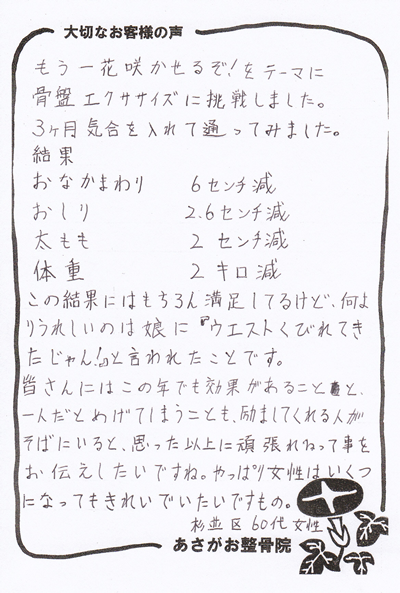 大切なお客様の声
もう一花咲かせるぞ!をテーマに
骨盤エクササイズに挑戦しました。
3ヶ月気合を入れて通ってみました。
結果
おなかまわり 6センチ減
おしり 2.6センチ減
太もも 2センチ減
体重 2キロ減
この結果にはもちろん満足してるけど、何よ
りうれしいのは娘に『ウエストくびれてき
たじゃん!』と言われたことです。
皆さんにはこの年でも効果があること と、
一人だとめげてしまうことも、励ましてくれる人が
そばにいると、思った以上に頑張れるって事を
お伝えしたいですね。やっぱり女性はいくつ
になってもきれいでいたいですもの。
杉並区 60代 女性
あさがお整骨院